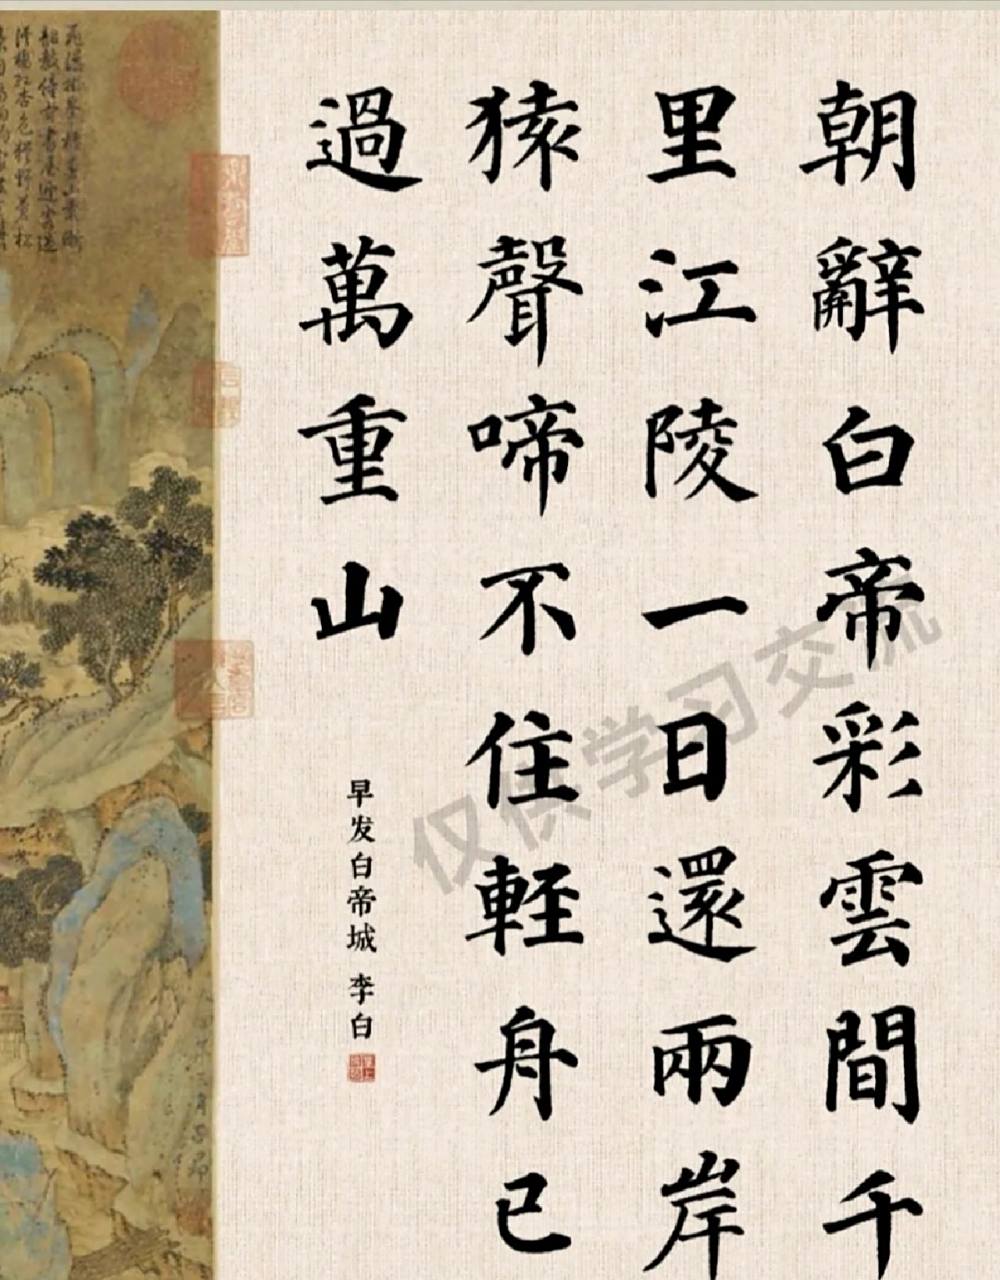 朝辭白帝彩雲間千
里江陵一日還兩岸
猿聲啼不住輊舟已
過萬重山
早发白帝城 李白
仅供学习交流